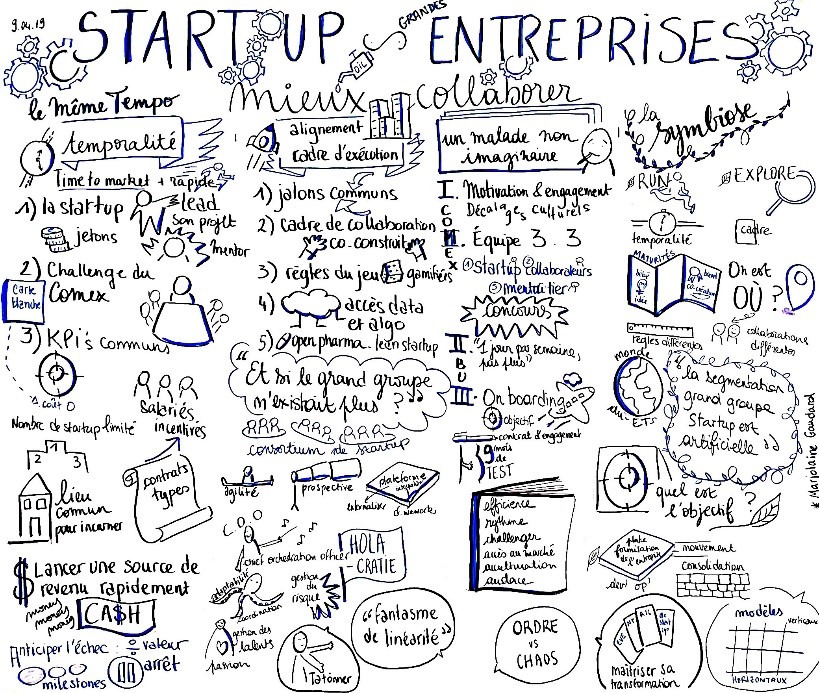 9.04.19
START UP ENTREPRISES
GRANDES
OIL
mieux collaborer
le même Tempo
temporalité
Time to market + rapide
1) la startup
lead
son projet
jetons
mentor
2) Challenge du
Comex
Carte
blanche
3) KPi's communs
coût 0
Nombre de startup limité
Salariés
incentivés
2 1 3
contrats
types
lieu
commun
pour incarner
$ Lancer une source de
revenu rapidement
money
money
money
CA$H
Anticiper l'échec :
valeur
arrêt
milestones
alignement
cadre d'exécution
1) jalons communs
2) Cadre de collaboration
co-construit
3) règles du jeu
gamifiés
4) accès data
et algo
5) Open pharma. lean startup
“ Et si le grand groupe
n'existait plus ? ”
consortium de startup
agilité
prospective
plateforme
chief orchestration officer
HOLA
CRATIE
gestion
du
risque
coordination
gestion des
talents
passion
Tâtonner
“fantasme
de linéarité”
un malade non
imaginaire
I. Motivation & engagement
Décalages culturels
COMEX
II. Équipe 3.3
① Startup ② collaborateurs
③ mentor tier
CONCOURS
II
BU
“1 jour par semaine,
pas plus”
III. On boarding
objectif
contrat d'engagement
9 mois
de
TEST
efficience
rythme
challenger
accès au marché
acculturation
audace
ORDRE
vs
CHAOS
la
symbiose
RUN
EXPLORE
temporalité
cadre
MATURITÉS
idée
On est
OÙ ?
règles différentes
collaborations
différentes
monde
“ la segmentation
grand groupe
Startup est
artificielle ”
quel est
l'objectif ?
dev op
mouvement
consolidation
maîtriser sa
transformation
modèles
verticaux
HORIZONTAUX
* Marjolaine Gaudard